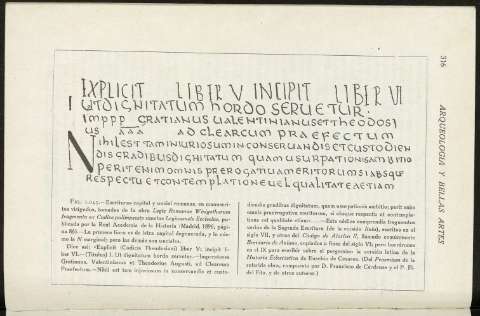 EXPLICIT LIBER V INCIPIT LIBER VI
I UT DIGNITATUM hORDO SERUETUR:
Imppp GRATIANUS UALENTINIANUS ET THEODOSI
US AAA AD CLEARCUM PRAEFECTUM
Nihil est tam iniuriosum in conseruandis et custodien
dis gradibus dignitatum quam usurpationis ambitio
perit enim omnis prerogatiua meritorum si absque
respectu et contemplatione uel qualitate aetiam
316
ARQUEOLOGÍA Y BELLAS ARTES
Escritura capital y uncial romanas, en manuscri-
tos visigodos, tomadas de la obra Legis Romanae Wisigothorum
fragmenta ex Codice palimpsesto sanctae Legionensis Ecclesiae, pu-
blicada por la Real Academia de la Historia (Madrid, 1896, pági-
La primera línea es de letra capital degenerada, y la mis-
ma la N marginal; pero las demás son unciales.
Dice así: «Explicit (Codicis Theodosiani) liber V; incipit li-
ber VI.—(Titulus) I. Ut dignitatum hordo servetur.—Imperatores
Gratianus, Valentinianus et Theodosius Augusti, ad Clearcum
Praefectum.—Nihil est tam injuriosum in conservandis et custo-
diendis gradibus dignitatum, quam usurpationis ambitio; perit enim
omnis prerogativa meritorum, si absque respectu et contempla-
tione vel qualitate etiam.....—Este códice comprende fragmentos
varios de la Sagrada Escritura (de la versión Itala), escritos en el
siglo VII, y otros del Código de Alarico II, llamado comúnmente
Breviario de Aniano, copiados a fines del siglo VI; pero los últimos
en el IX para escribir sobre el pergamino la versión latina de la
Historia Eclesiástica de Eusebio de Cesarea. (Del Proemium de la
referida obra, compuesto por D. Francisco de Cárdenas y el P. Fi-
del Fita, y de otros autores.)